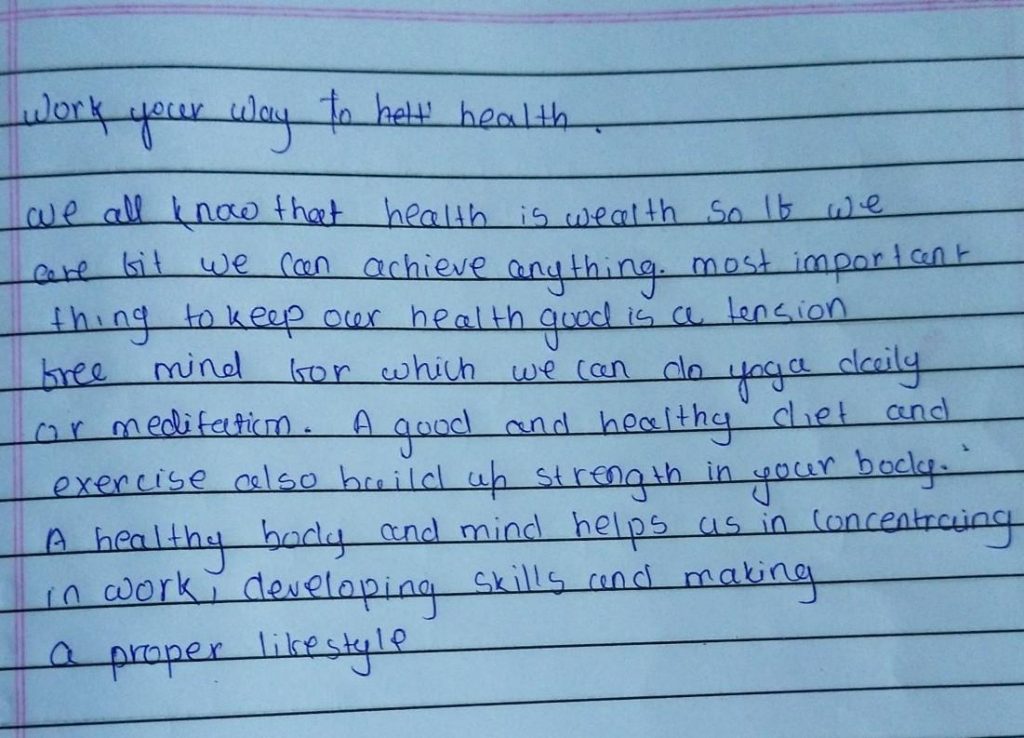 Work your way to bett' health.
we all know that health is wealth so if we
are fit we can achieve anything. most important
thing to keep our health good is a tension
free mind for which we can do yoga daily
or meditation. A good and healthy diet and
exercise also build up strength in your body.
A healthy body and mind helps us in concentraing
in work, developing skills and making
a proper lifestyle